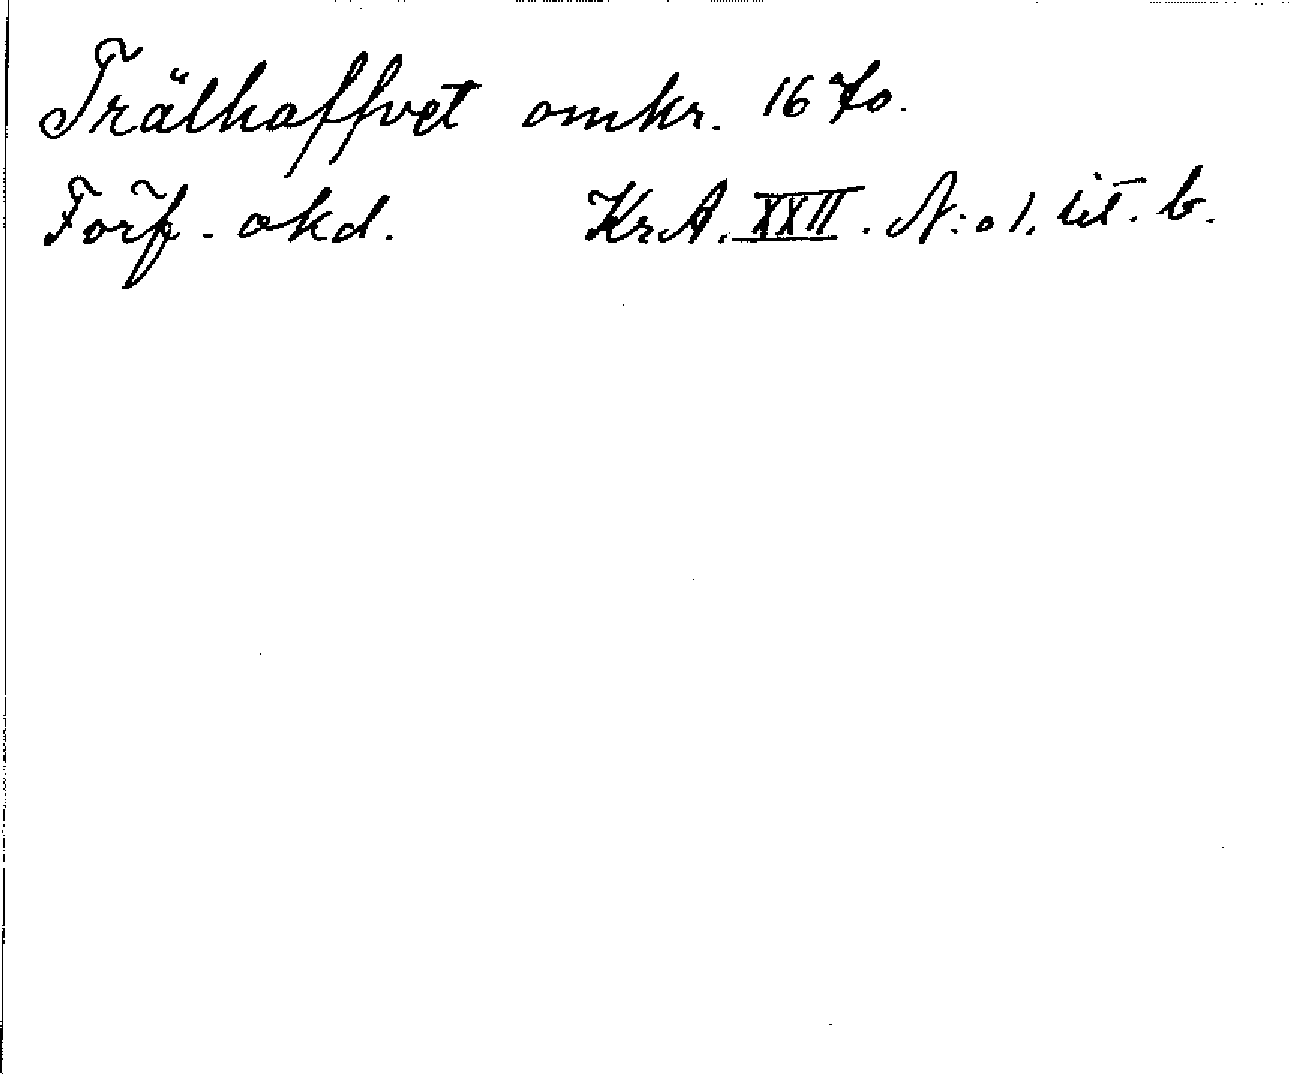 Trälhaffvet omkr. 1670.
Förf. okd. KrA. XXII. N:o 1. lit. b.